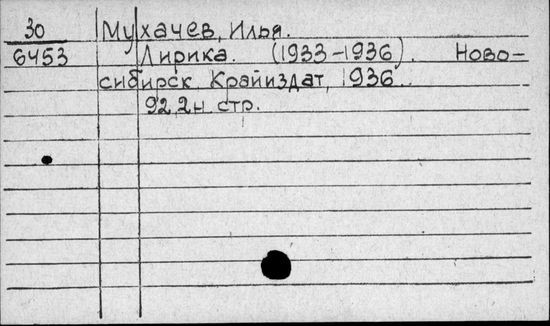 30 Мухачев, Илья.
6453 Лирика. (1933-1936). Ново-
сибирск. Крайиздат, 1936.
92, 2н. стр.